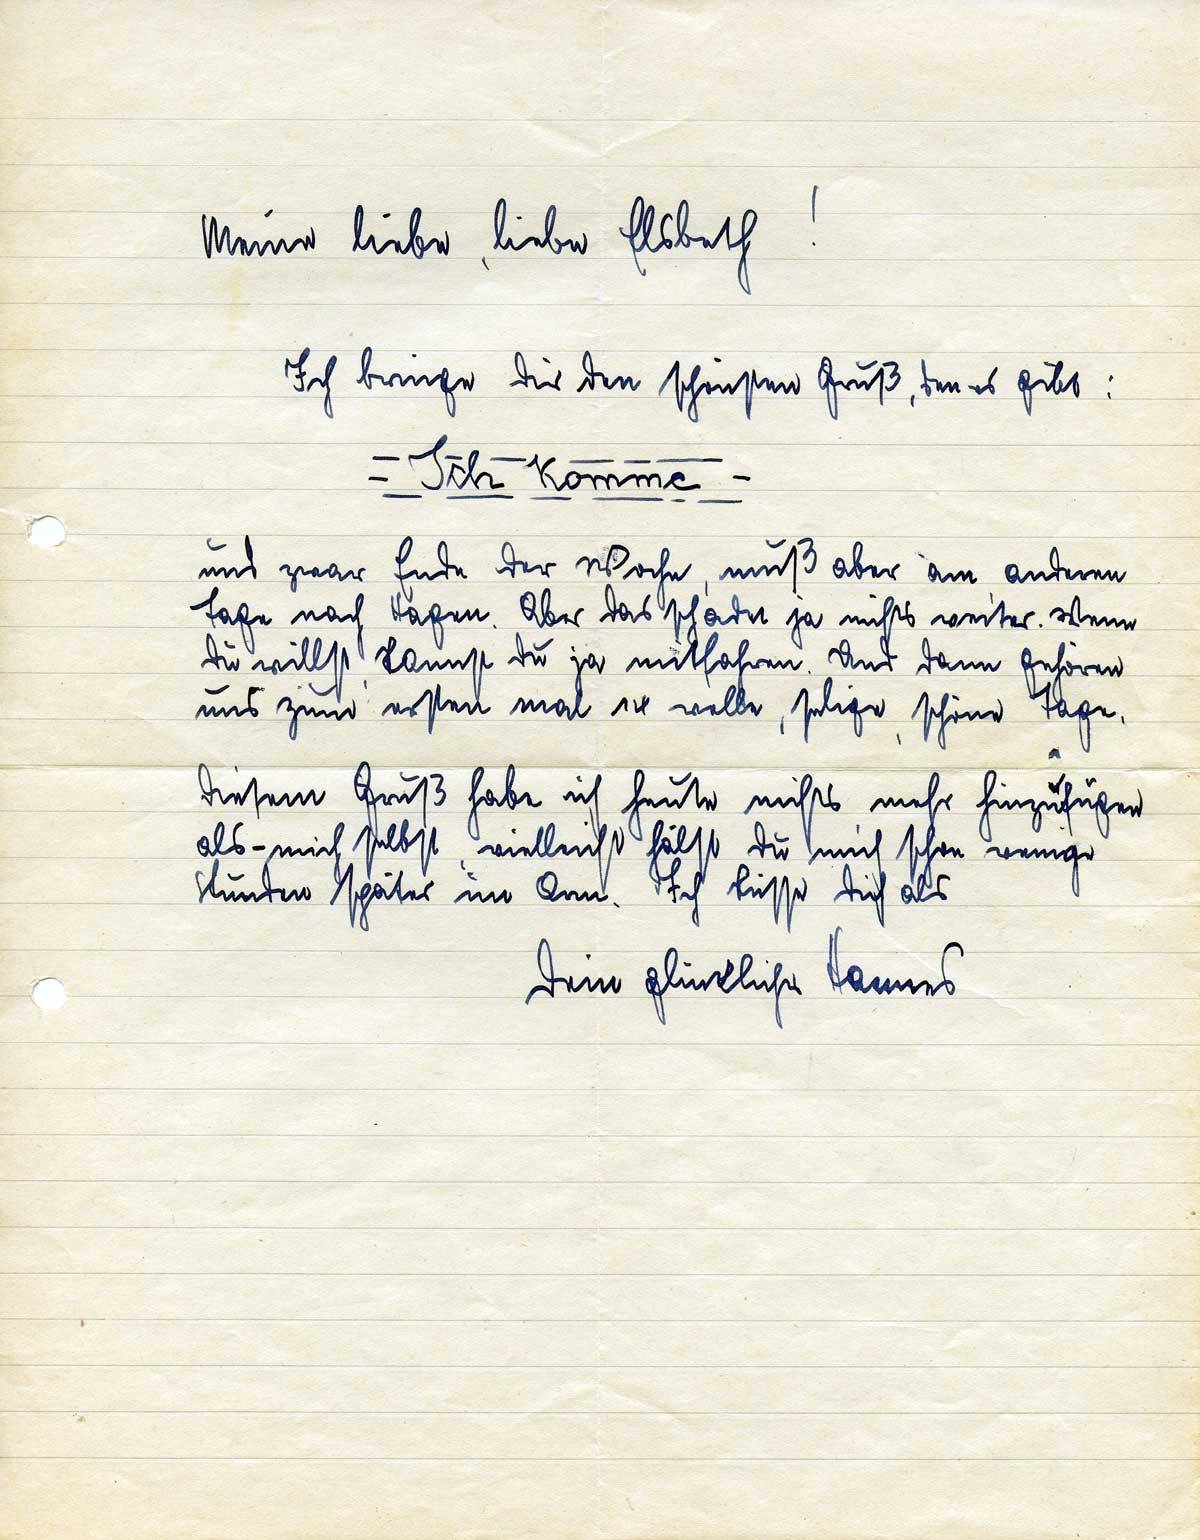 Meine liebe, liebe Elsbeth!
Ich bringe dir den schönsten Gruß, den es gibt:
= Ich komme =
und zwar Ende der Woche, muß aber am anderen
Tage nach Hagen. Aber das schadet ja nichts weiter. Wenn
du willst, kannst du ja mitfahren. Und dann gehören
uns zum ersten mal 14 volle, selige, schöne Tage.
Diesem Gruß habe ich heute nichts mehr hinzuzufügen
als - mich selbst, vielleicht hälst du mich schon wenige
Stunden später im Arm. Ich küsse dich als
Dein glücklicher Hannes